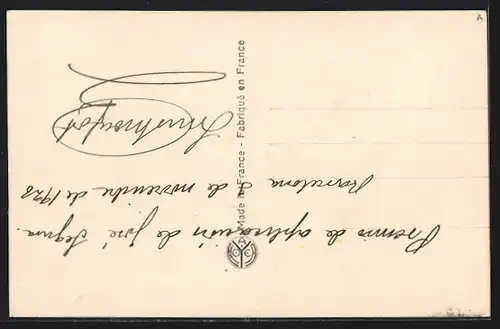 Premio de aplicación de José Segura.
Barcelona 2 de noviembre de 1928
Made in France - Fabriqué en France
A